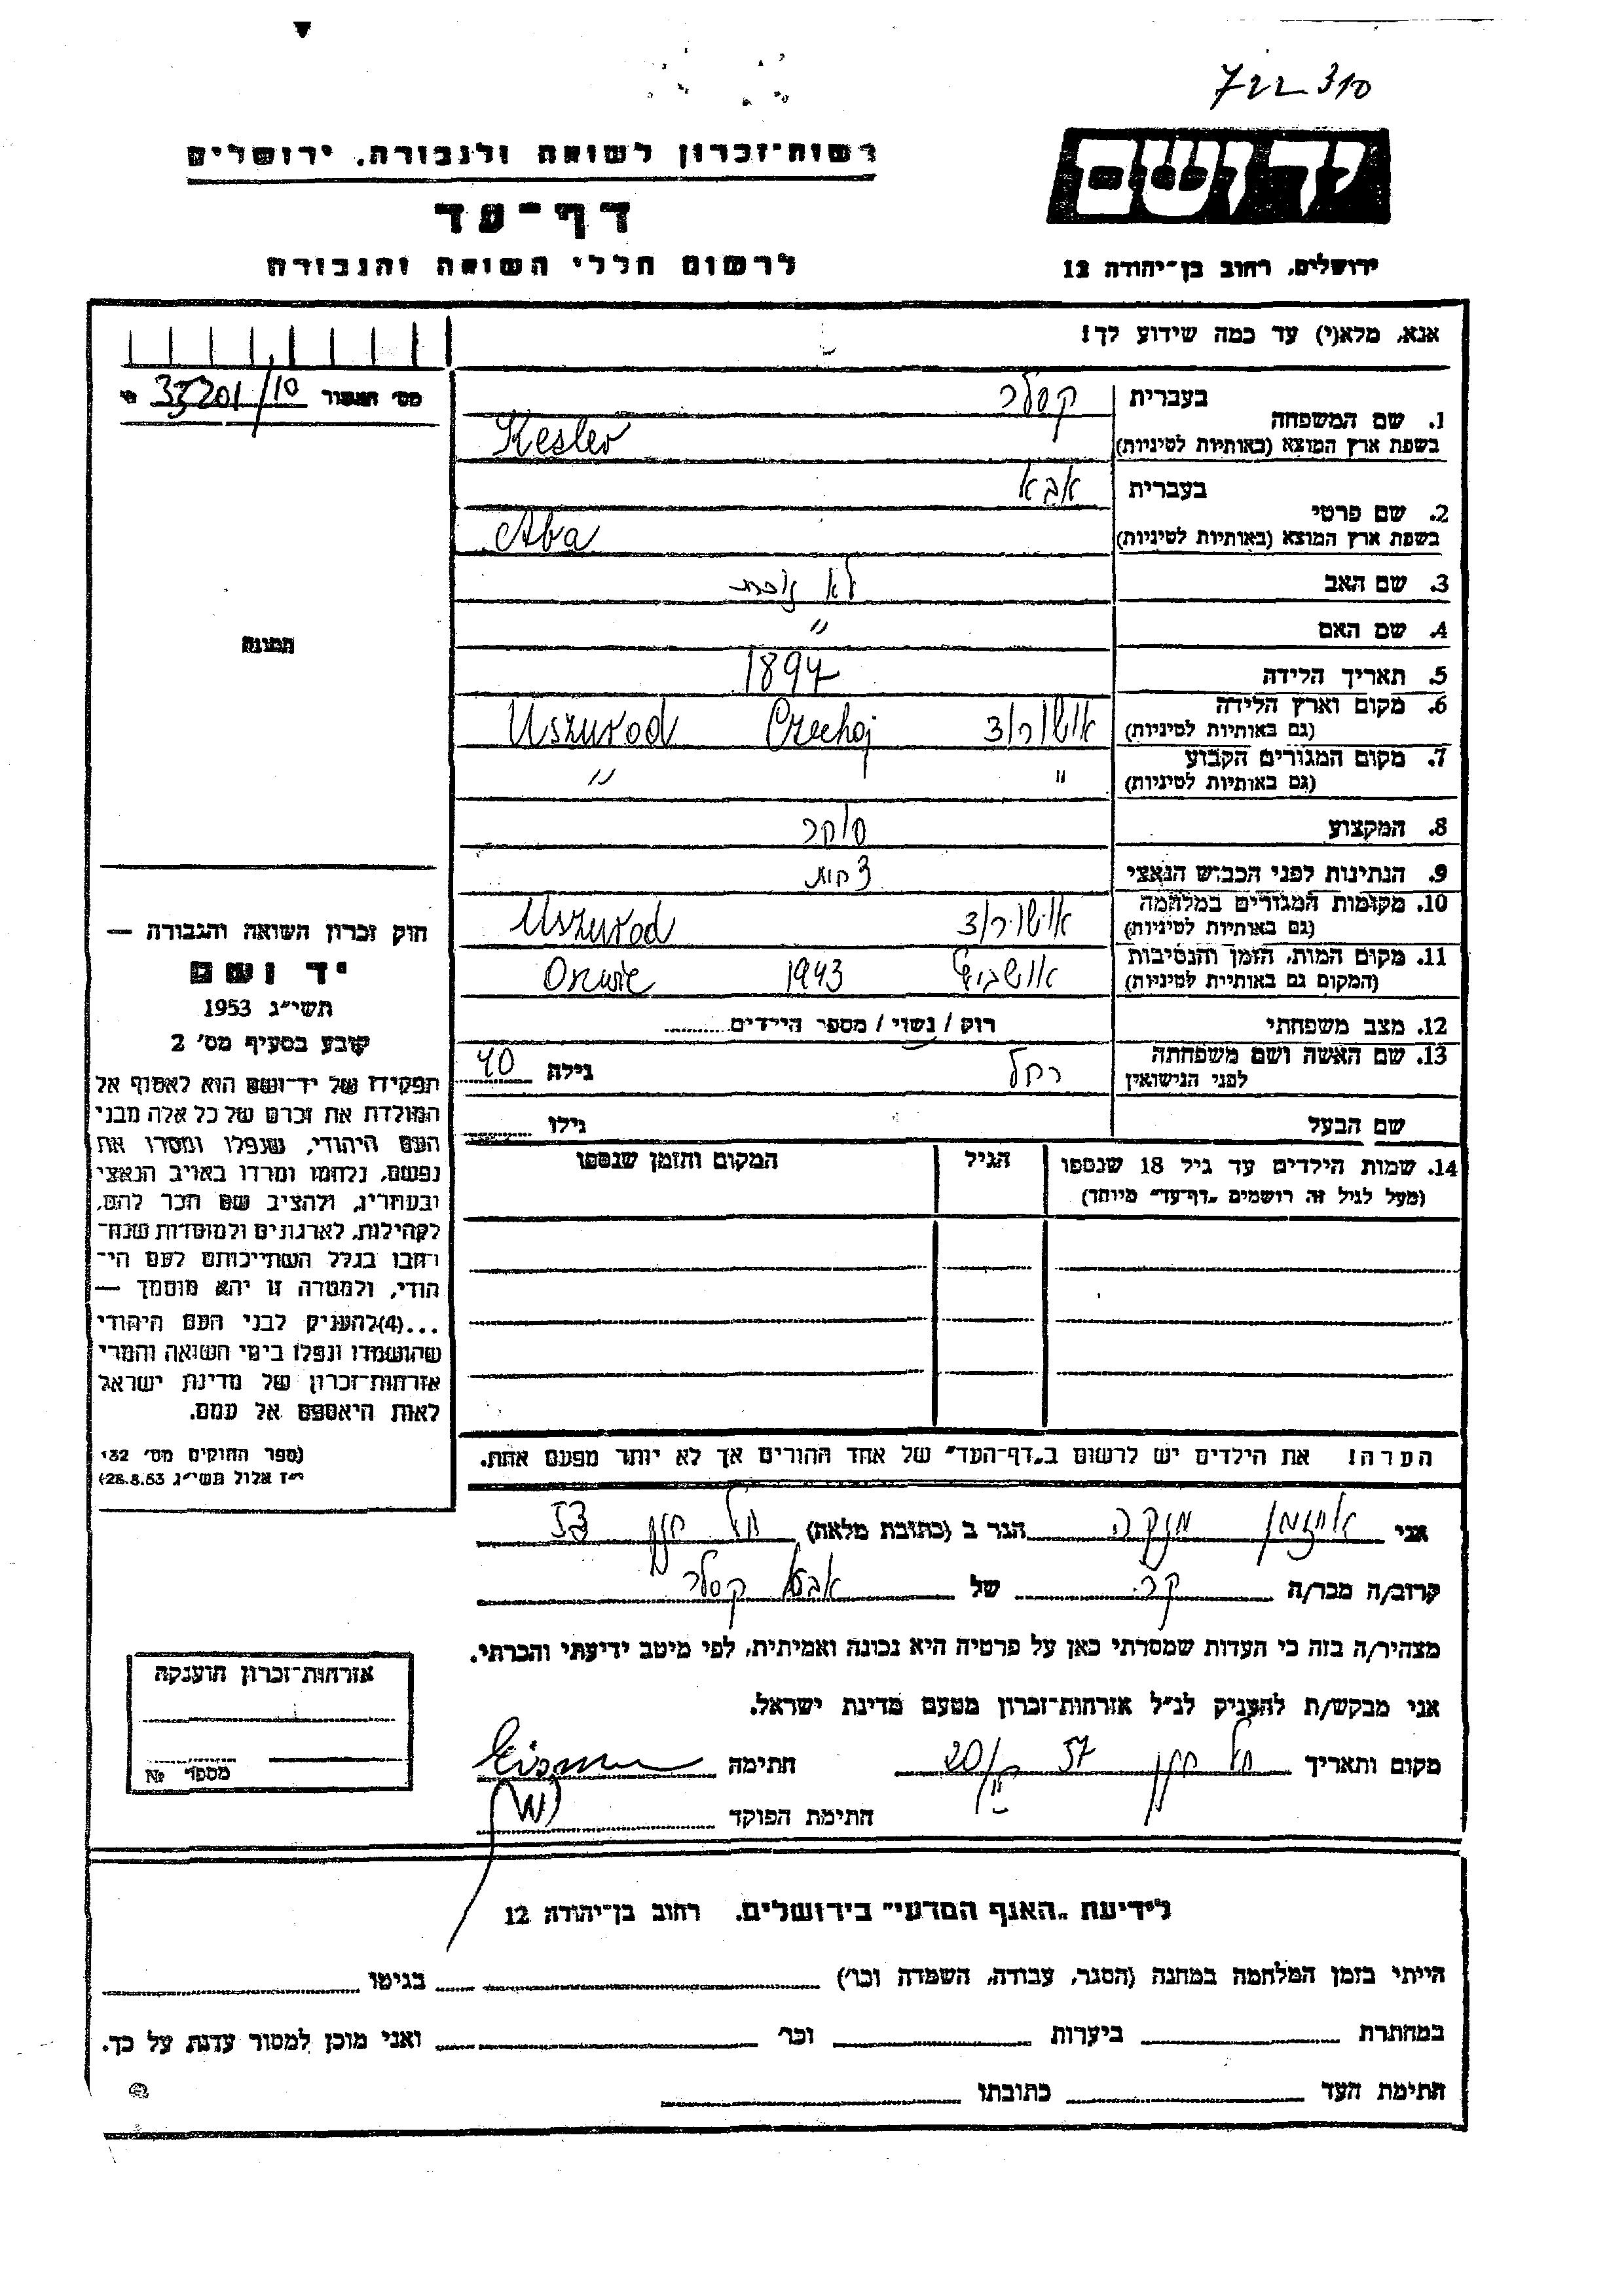 722310
רשות־זכרון לשואה ולגבורה, ירושלים
יד ושם
דף־עד
לרשום חללי השואה והגבורה
ירושלים, רחוב בן־יהודה 12
אנא, מלא(י) עד כמה שידוע לך!
מס׳ 35201/10
1. שם המשפחה בעברית קסלר
בשפת ארץ המוצא (באותיות לטיניות) Kesler
2. שם פרטי בעברית אבא
בשפת ארץ המוצא (באותיות לטיניות) Aba
3. שם האב לא
4. שם האם "
5. תאריך הלידה 1894
6. מקום וארץ הלידה Uszurod Czechoj
(גם באותיות לטיניות)
7. מקום המגורים הקבוע " "
(גם באותיות לטיניות)
8. המקצוע סוחר
9. הנתינות לפני הכבוש הנאצי
10. מקומות המגורים במלחמה Uszurod
(גם באותיות לטיניות)
11. מקום המות, הזמן והנסיבות 1943
(המקום גם באותיות לטיניות)
12. מצב משפחתי רווק / נשוי / מספר הילדים
13. שם האשה ושם משפחתה לפני הנישואין רחל גילה 40
שם הבעל גילו
14. שמות הילדים עד גיל 18 שנספו הגיל המקום והזמן שנספו
(מעל לגיל זה רושמים „דף־עד״ מיוחד)
תמונה
חוק זכרון השואה והגבורה —
יד ושם
תשי״ג 1953
קובע בסעיף מס׳ 2
תפקידו של יד־ושם הוא לאסוף אל
המולדת את זכרם של כל אלה מבני
העם היהודי, שנפלו ומסרו את
נפשם, נלחמו ומרדו באויב הנאצי
ובעוזריו, ולהציב שם וזכר להם,
לקהילות, לארגונים ולמוסדות שנח־
רבו בגלל השתייכותם לעם הי־
הודי, ולמטרה זו יהא מוסמך —
...(4)להעניק לבני העם היהודי
שהושמדו ונפלו בימי השואה והמרי
אזרחות־זכרון של מדינת ישראל
לאות היאספם אל עמם.
(ספר החוקים מס׳ 132
י״ז אלול תשי״ג 28.8.53)
הערה! את הילדים יש לרשום ב„דף־העד״ של אחד ההורים אך לא יותר מפעם אחת.
אני הגר ב (כתובת מלאה)
קרוב/ה מכר/ה של אבא קסלר
מצהיר/ה בזה כי העדות שמסרתי כאן על פרטיה היא נכונה ואמיתית, לפי מיטב ידיעתי והכרתי.
אני מבקש/ת להעניק לנ״ל אזרחות־זכרון מטעם מדינת ישראל.
מקום ותאריך חתימה
חתימת הפוקד
אזרחות־זכרון הוענקה
מספר №
לידיעת „האגף המדעי״ בירושלים, רחוב בן־יהודה 12
הייתי בזמן המלחמה במחנה (הסגר, עבודה, השמדה וכו׳) בגיטו
במחתרת ביערות וכו׳ ואני מוכן למסור עדות על כך.
חתימת העד כתובתו